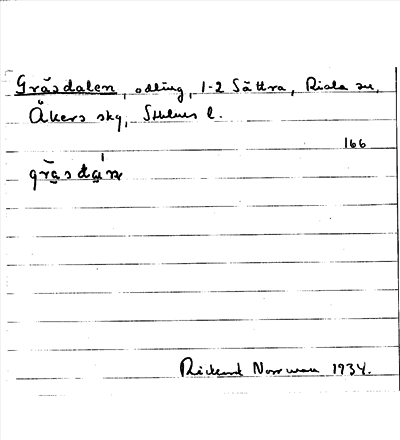 Gräsdalen, odling, 1-2 Sättra, Riala sn,
Åkers skg, Sthlms l.
166
Rickard Norrman 1934.